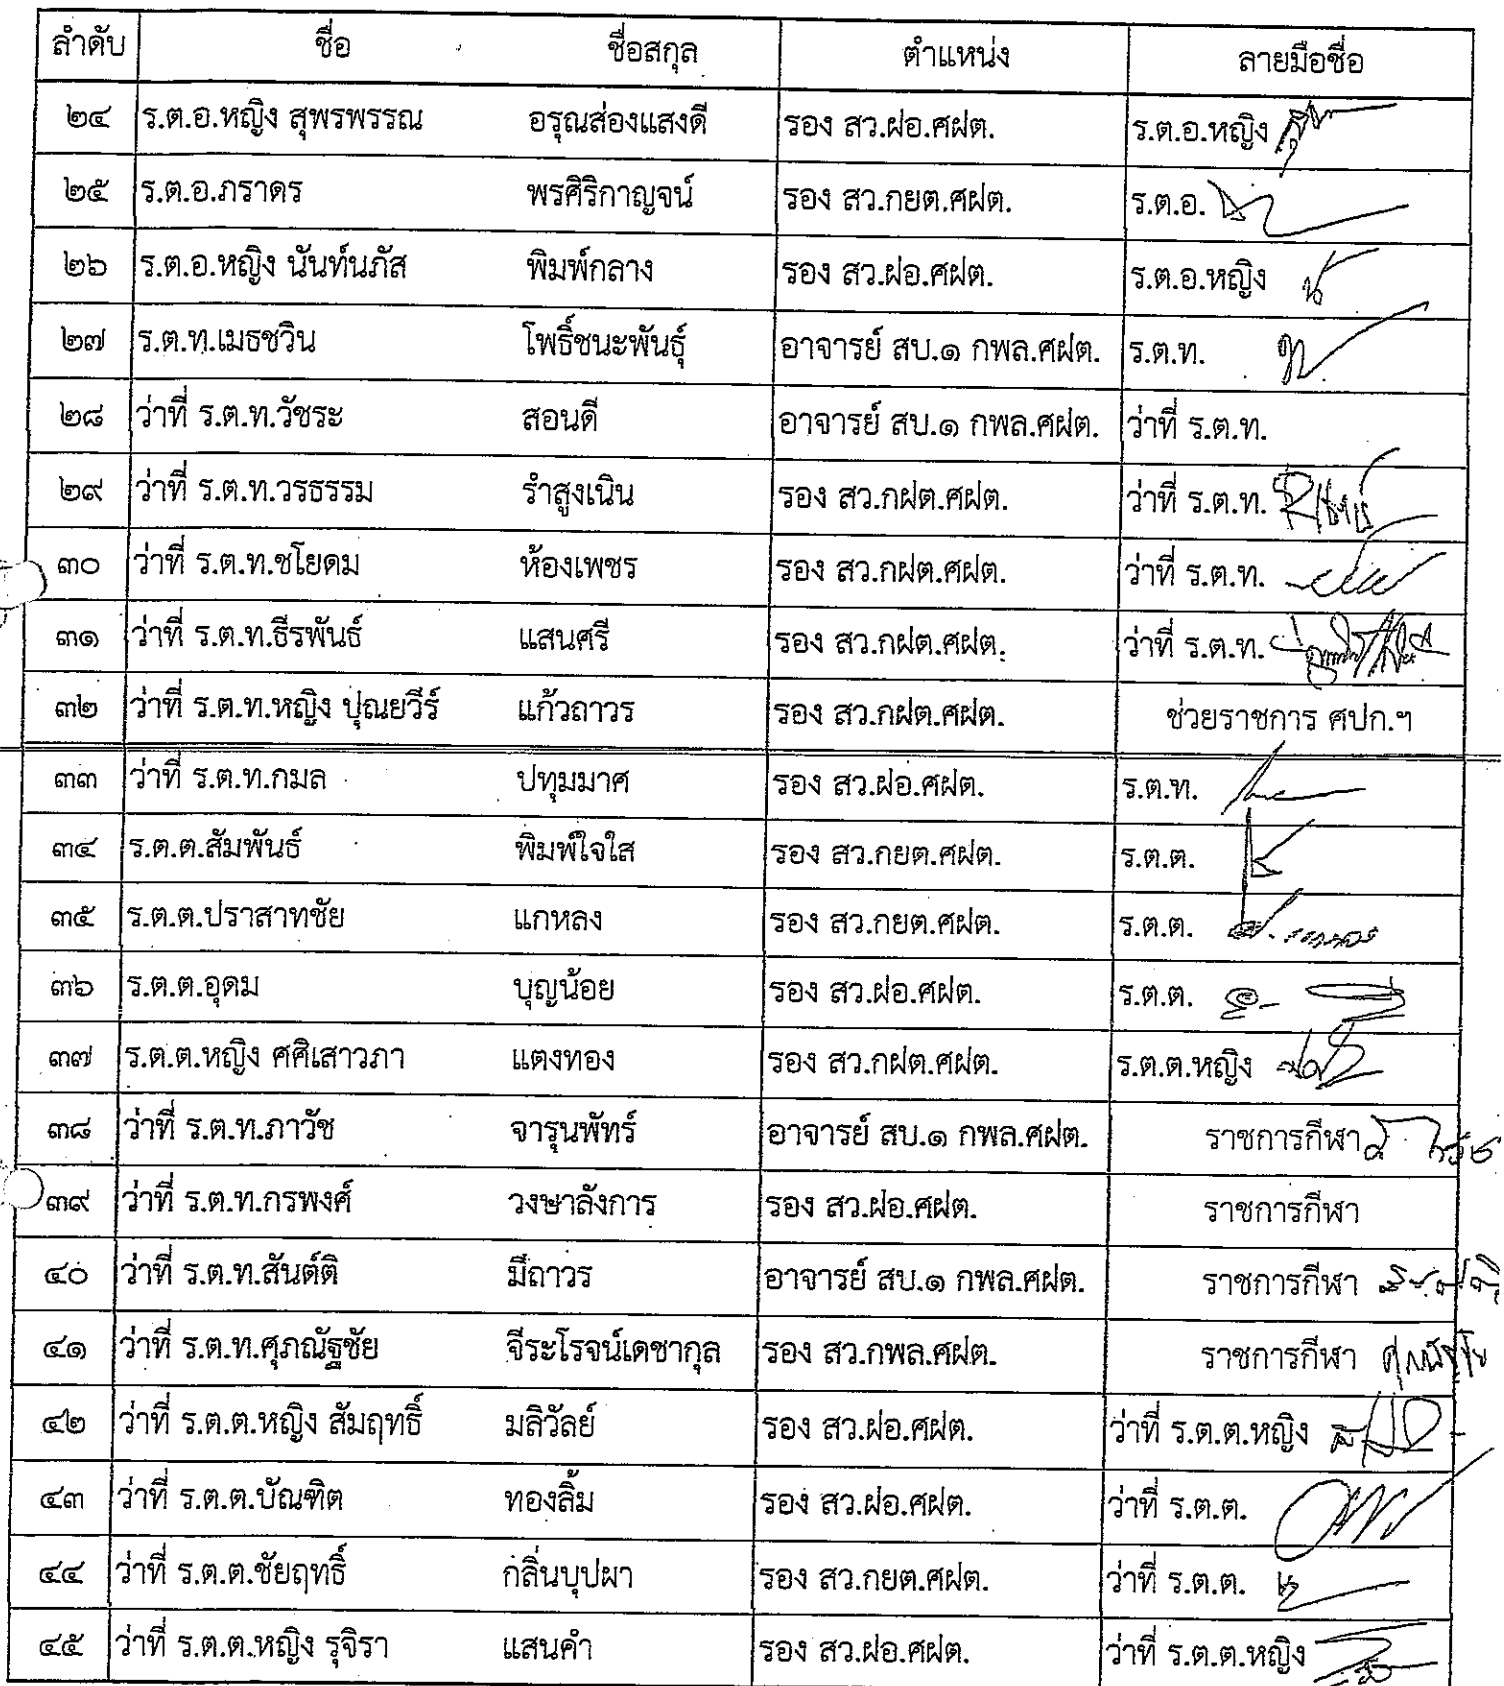 ลำดับ ชื่อ ชื่อสกุล ตำแหน่ง ลายมือชื่อ
๒๔ ร.ต.อ.หญิง สุพรพรรณ อรุณส่องแสงดี รอง สว.ฝอ.ศฝต. ร.ต.อ.หญิง
๒๕ ร.ต.อ.ภราดร พรศิริกาญจน์ รอง สว.กยต.ศฝต. ร.ต.อ.
๒๖ ร.ต.อ.หญิง นันท์นภัส พิมพ์กลาง รอง สว.ฝอ.ศฝต. ร.ต.อ.หญิง
๒๗ ร.ต.ท.เมธชวิน โพธิ์ชนะพันธุ์ อาจารย์ สบ.๑ กพล.ศฝต. ร.ต.ท.
๒๘ ว่าที่ ร.ต.ท.วัชระ สอนดี อาจารย์ สบ.๑ กพล.ศฝต. ว่าที่ ร.ต.ท.
๒๙ ว่าที่ ร.ต.ท.วรธรรม รำสูงเนิน รอง สว.กฝต.ศฝต. ว่าที่ ร.ต.ท.
๓๐ ว่าที่ ร.ต.ท.ชโยดม ห้องเพชร รอง สว.กฝต.ศฝต. ว่าที่ ร.ต.ท.
๓๑ ว่าที่ ร.ต.ท.ธีรพันธ์ แสนศรี รอง สว.กฝต.ศฝต. ว่าที่ ร.ต.ท.
๓๒ ว่าที่ ร.ต.ท.หญิง ปุณยวีร์ แก้วถาวร รอง สว.กฝต.ศฝต. ช่วยราชการ ศปก.ฯ
๓๓ ว่าที่ ร.ต.ท.กมล ปทุมมาศ รอง สว.ฝอ.ศฝต. ร.ต.ท.
๓๔ ร.ต.ต.สัมพันธ์ พิมพ์ใจใส รอง สว.กยต.ศฝต. ร.ต.ต.
๓๕ ร.ต.ต.ปราสาทชัย แกหลง รอง สว.กยต.ศฝต. ร.ต.ต.
๓๖ ร.ต.ต.อุดม บุญน้อย รอง สว.ฝอ.ศฝต. ร.ต.ต.
๓๗ ร.ต.ต.หญิง ศศิเสาวภา แตงทอง รอง สว.กฝต.ศฝต. ร.ต.ต.หญิง
๓๘ ว่าที่ ร.ต.ท.ภาวัช จารุนพัทร์ อาจารย์ สบ.๑ กพล.ศฝต. ราชการกีฬา
๓๙ ว่าที่ ร.ต.ท.กรพงศ์ วงษาลังการ รอง สว.ฝอ.ศฝต. ราชการกีฬา
๔๐ ว่าที่ ร.ต.ท.สันต์ติ มีถาวร อาจารย์ สบ.๑ กพล.ศฝต. ราชการกีฬา
๔๑ ว่าที่ ร.ต.ท.ศุภณัฐชัย จีระโรจน์เดชากุล รอง สว.กพล.ศฝต. ราชการกีฬา ศุภณัฐชัย
๔๒ ว่าที่ ร.ต.ต.หญิง สัมฤทธิ์ มลิวัลย์ รอง สว.ฝอ.ศฝต. ว่าที่ ร.ต.ต.หญิง
๔๓ ว่าที่ ร.ต.ต.บัณฑิต ทองลิ้ม รอง สว.ฝอ.ศฝต. ว่าที่ ร.ต.ต.
๔๔ ว่าที่ ร.ต.ต.ชัยฤทธิ์ กลิ่นบุปผา รอง สว.กยต.ศฝต. ว่าที่ ร.ต.ต.
๔๕ ว่าที่ ร.ต.ต.หญิง รุจิรา แสนคำ รอง สว.ฝอ.ศฝต. ว่าที่ ร.ต.ต.หญิง